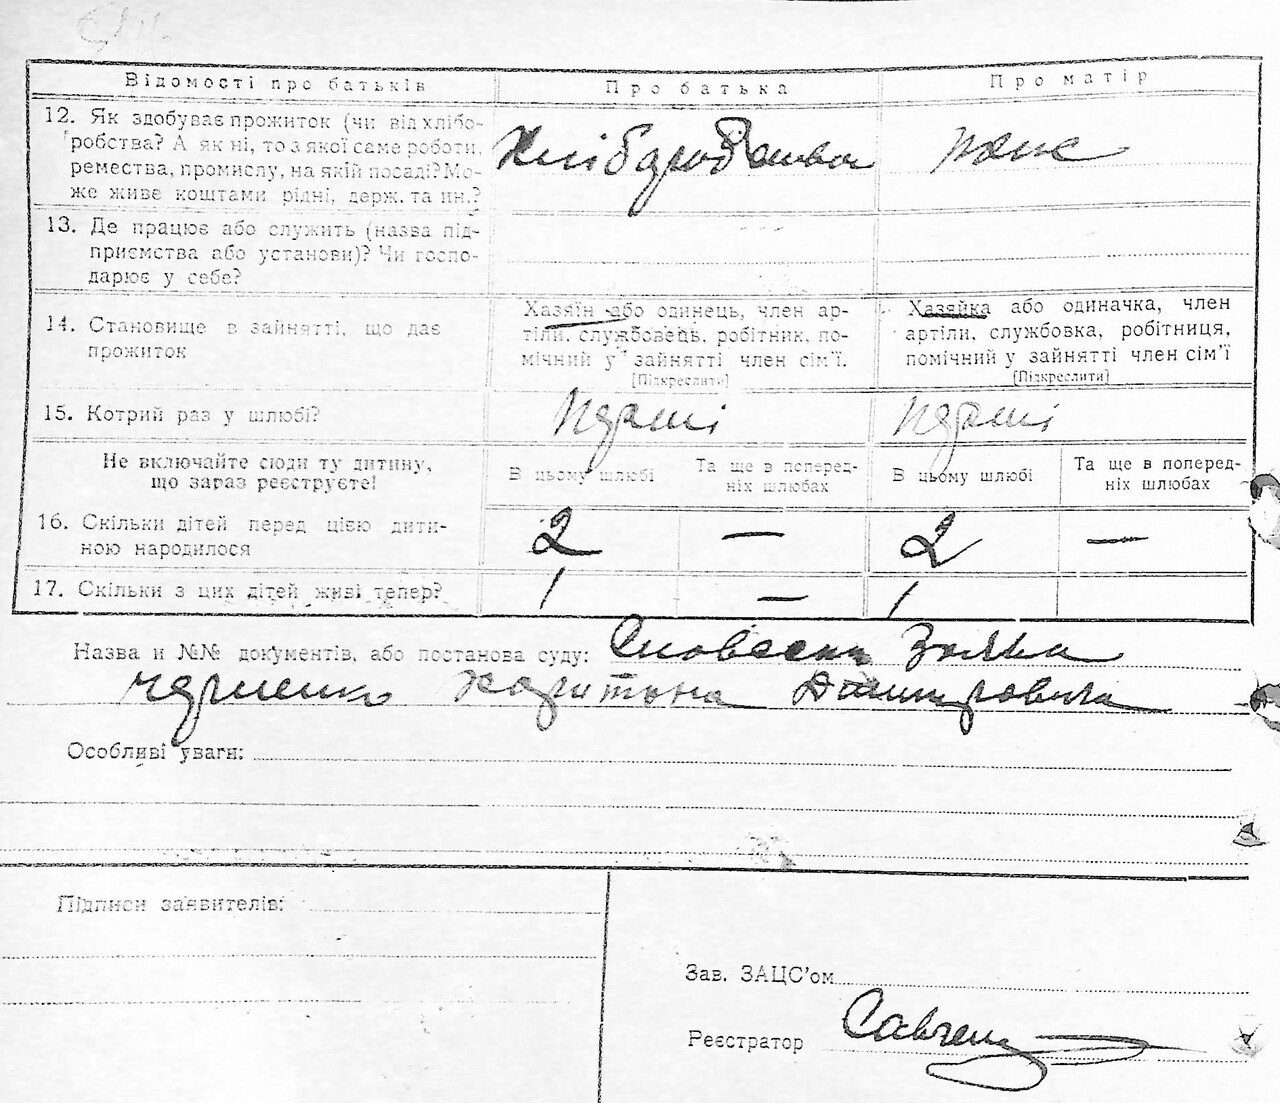 Відомості про батьків
Про батька
Про матір
12. Як здобуває прожиток (чи від хлібо-
робства? А як ні, то з якої саме роботи,
ремества, промислу, на якій посаді? Мо-
же живе коштами рідні, держ. та ин.?
Хлібаробства
тоже
13. Де працює або служить (назва під-
приємства або установи)? Чи госпо-
дарює у себе?
14. Становище в зайнятті, що дає
прожиток
Хазяїн або одинець, член ар-
тіли, службовець, робітник, по-
мічний у зайнятті член сім'ї.
[Підкреслити]
Хазяйка або одиначка, член
артіли, службовка, робітниця,
помічний у зайнятті член сім'ї
[Підкреслити]
15. Котрий раз у шлюбі?
Не включайте сюди ту дитину,
що зараз реєструєте!
В цьому шлюбі
Та ще в поперед-
ніх шлюбах
В цьому шлюбі
Та ще в поперед-
ніх шлюбах
16. Скільки дітей перед цією дити-
ною народилося
2 — 2 —
17. Скільки з цих дітей живі тепер?
1 — 1
Назва и №№ документів, або постанова суду: Словесна Заява
Харитона Дмитровича
Особливі уваги:
Підписи заявителів:
Зав. ЗАЦС'ом
Реєстратор